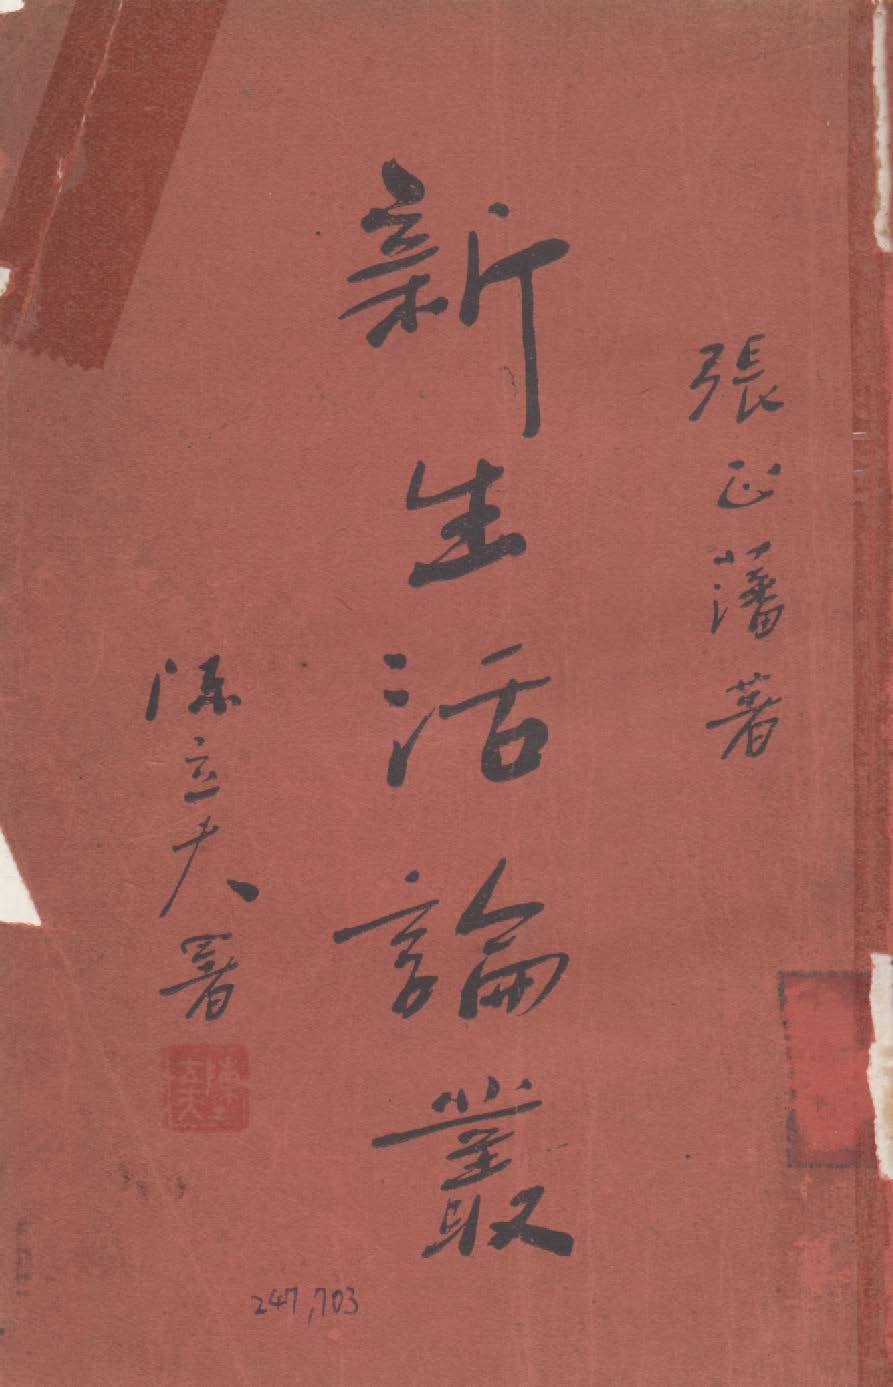 張正藩著
新生活論叢
陳立夫署
陳立夫
247,703